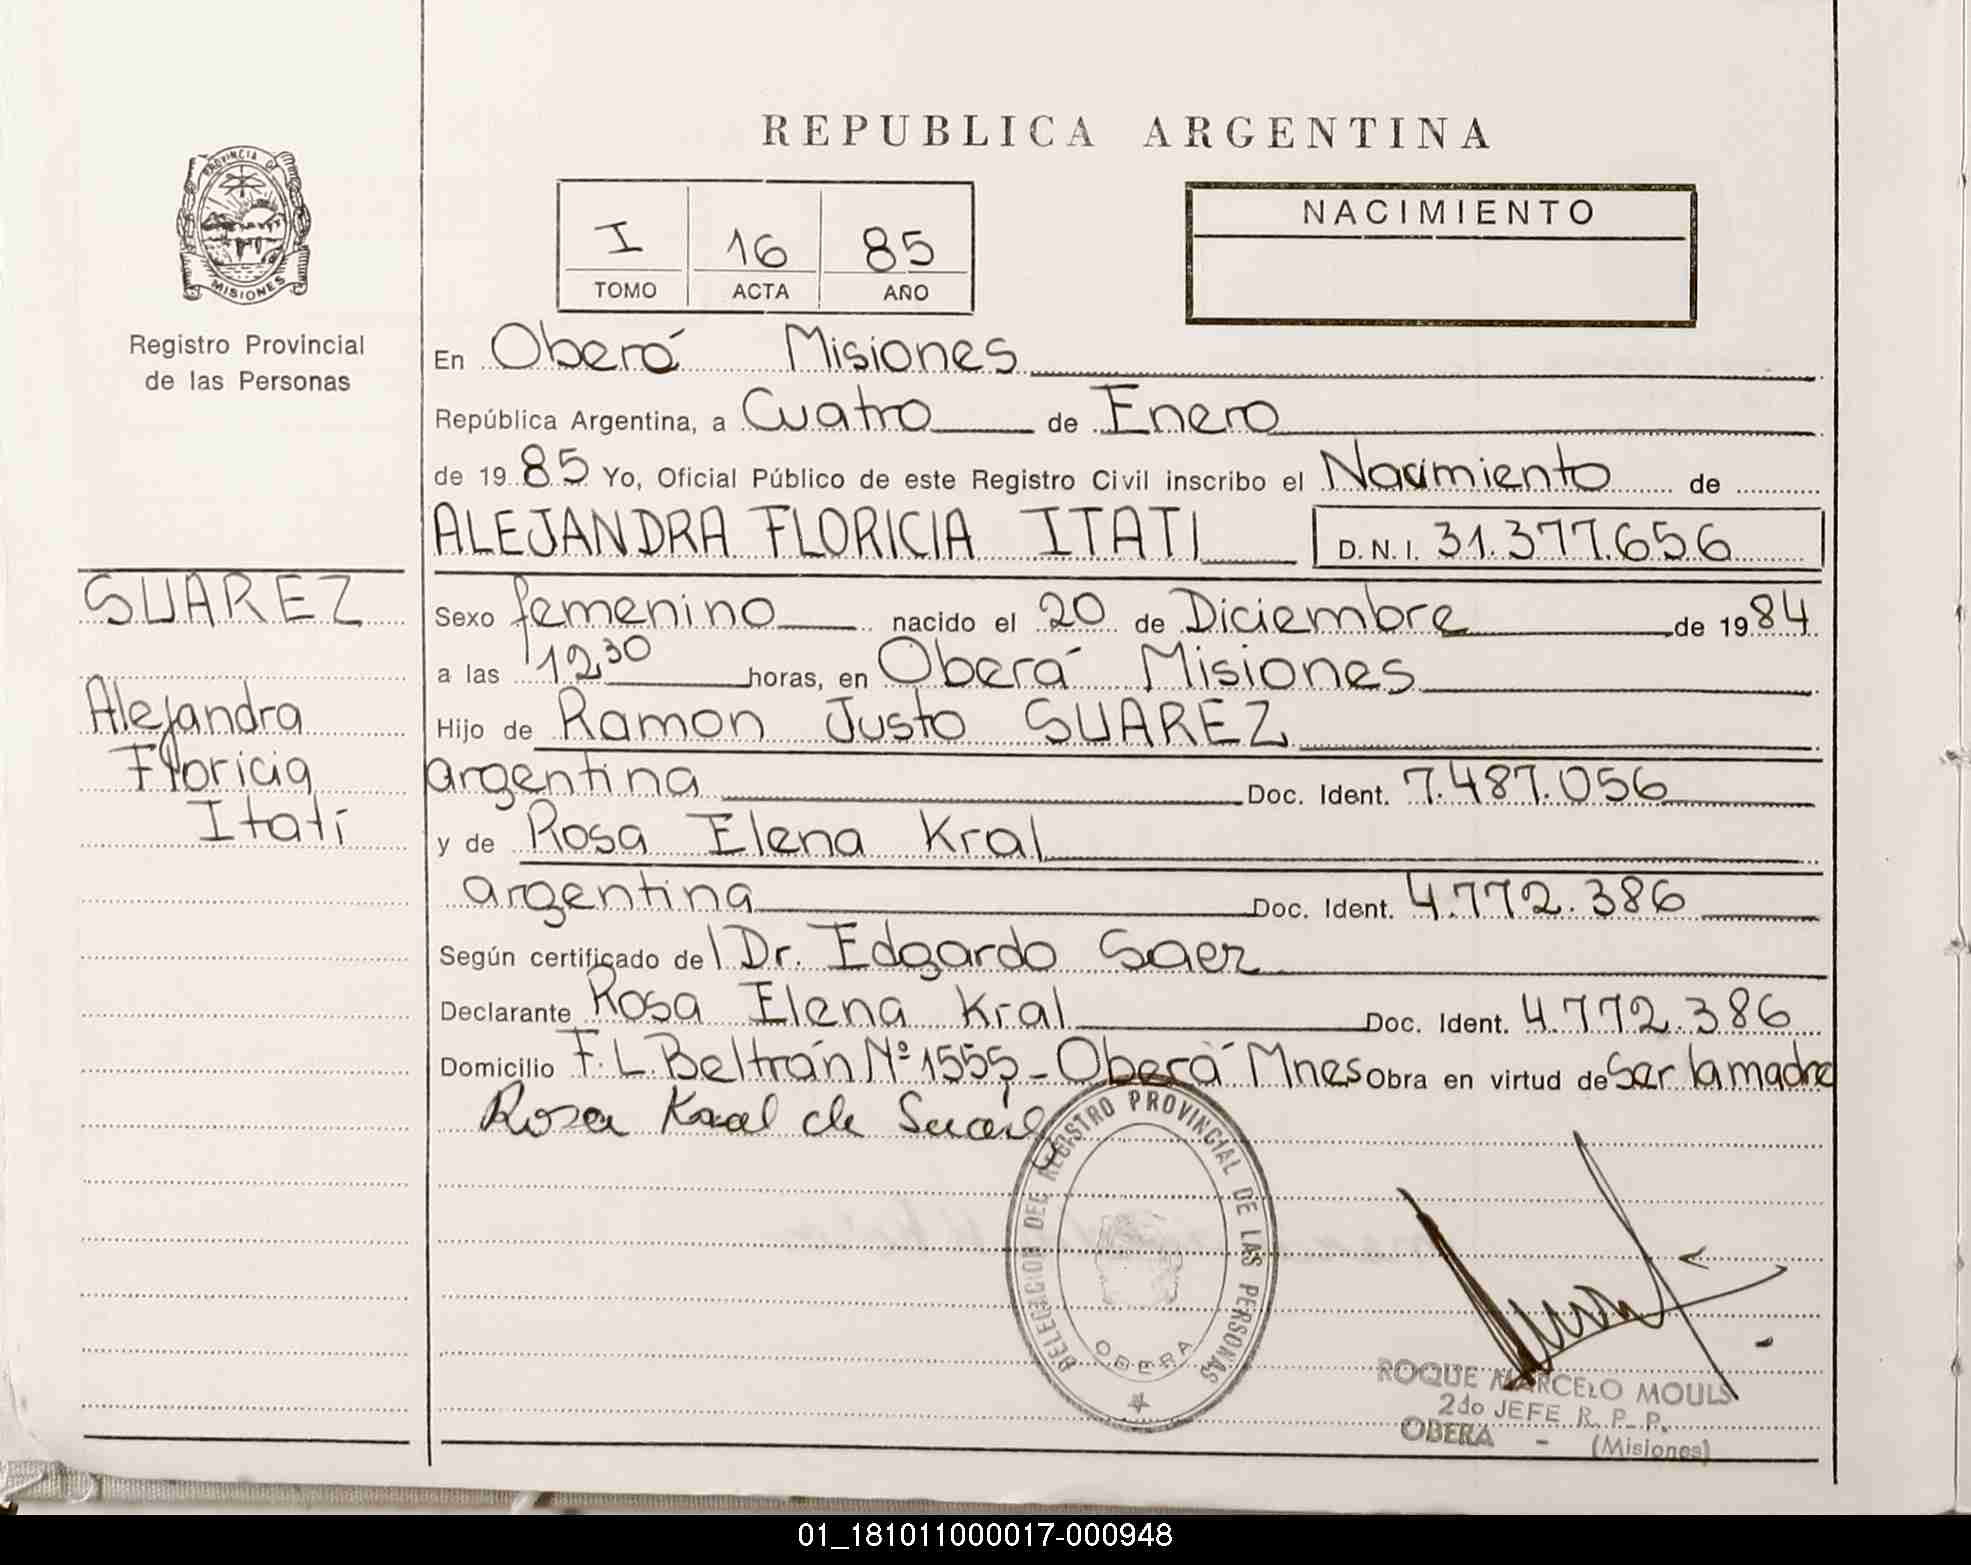 REPUBLICA ARGENTINA
PROVINCIA DE
MISIONES
Registro Provincial
de las Personas
I 16 85
TOMO ACTA AÑO
NACIMIENTO
En Oberá Misiones
República Argentina, a Cuatro de Enero
de 1985 Yo, Oficial Público de este Registro Civil inscribo el Nacimiento de
ALEJANDRA FLORICIA ITATI D.N.I. 31.377.656
SUAREZ
Alejandra
Floricia
Itatí
Sexo femenino nacido el 20 de Diciembre de 1984
a las 12 30 horas, en Oberá Misiones
Hijo de Ramon Justo SUAREZ
argentina Doc. Ident. 7.487.056
y de Rosa Elena Kral
argentina Doc. Ident. 4.772.386
Según certificado del Dr. Edgardo Saez
Declarante Rosa Elena Kral Doc. Ident. 4.772.386
Domicilio F. L. Beltrán Nº 1555 - Oberá Mnes Obra en virtud de Ser la madre
Rosa Kral de Suarez
DELEGACION DEL REGISTRO PROVINCIAL DE LAS PERSONAS
OBERA
ROQUE MARCELO MOULS
2do JEFE R. P. P.
OBERA - (Misiones)
01_181011000017-000948